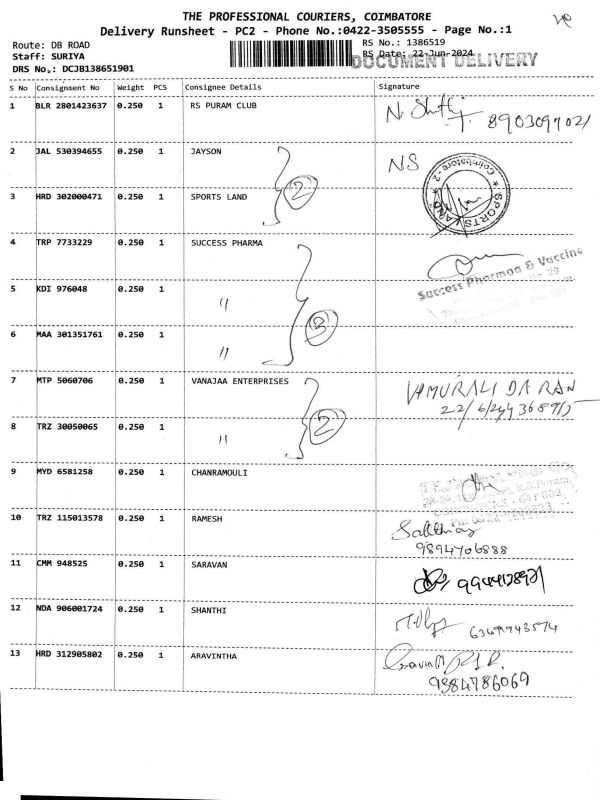 THE PROFESSIONAL COURIERS, COIMBATORE
Delivery Runsheet - PC2 - Phone No.:0422-3505555 - Page No.:1
Route: DB ROAD
RS No.: 1386519
Staff: SURIYA
RS Date: 22-Jun-2024
DRS No.: DCJB138651901
DOCUMENT DELIVERY
S No Consignment No Weight PCS Consignee Details Signature
1 BLR 2801423637 0.250 1 RS PURAM CLUB
8903097021
2 JAL 530394655 0.250 1 JAYSON NS
Coimbatore - 2
SPORTS LAND
3 HRD 302000471 0.250 1 SPORTS LAND
2
4 TRP 7733229 0.250 1 SUCCESS PHARMA
Success Pharmaa & Vaccine
5 KDI 976048 0.250 1 "
3
6 MAA 301351761 0.250 1 "
7 MTP 5060706 0.250 1 VANAJAA ENTERPRISES
2
8 TRZ 30050065 0.250 1 "
9 MYD 6581258 0.250 1 CHANRAMOULI
10 TRZ 115013578 0.250 1 RAMESH
9894706888
11 CMM 948525 0.250 1 SARAVAN
12 NDA 906001724 0.250 1 SHANTHI
6369943574
13 HRD 312905802 0.250 1 ARAVINTHA
9384786069